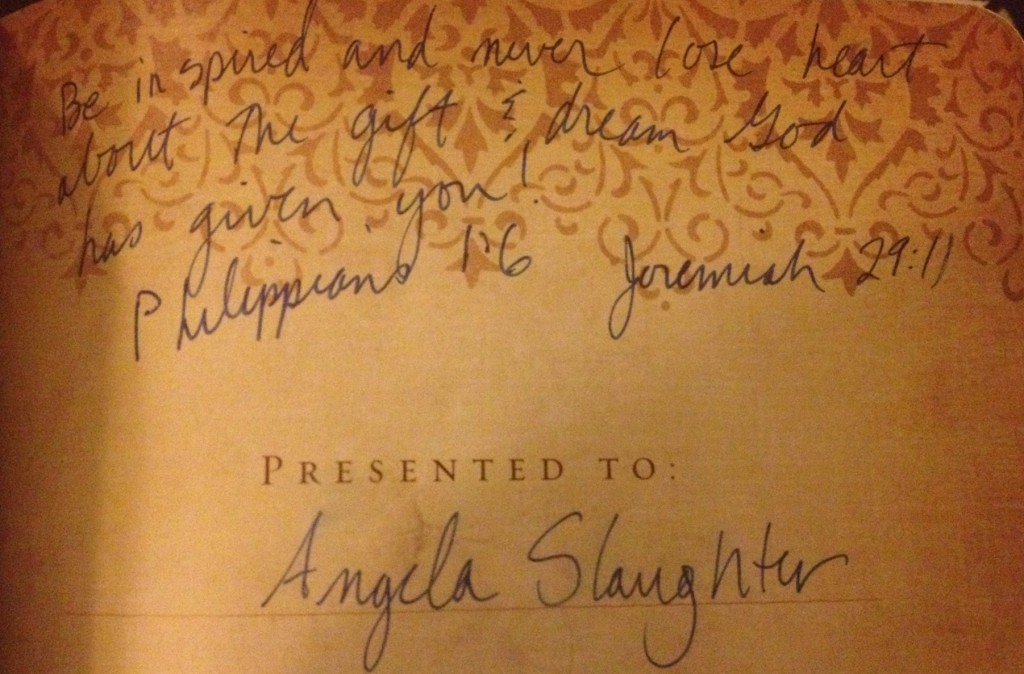 Be inspired and never lose heart
about the gift & dream God
has given you!
Philippians 1:6 Jeremiah 29:11
PRESENTED TO:
Angela Slaughter